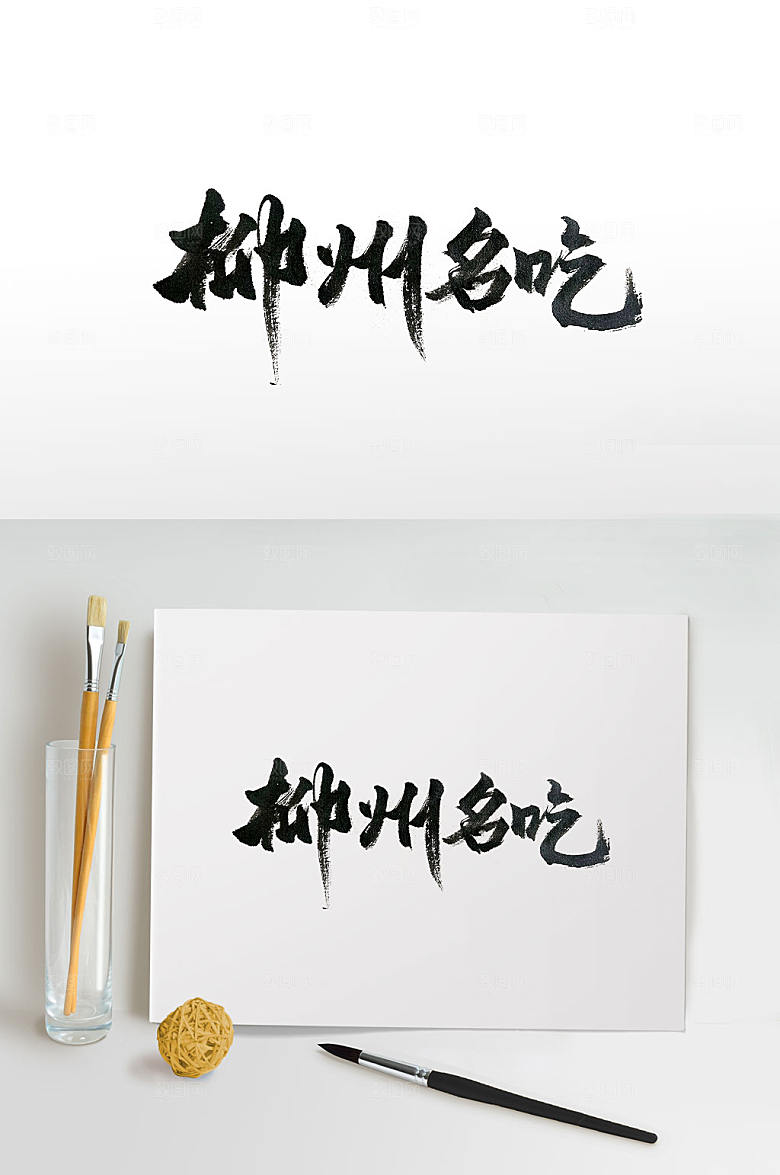 柳州名吃
柳州名吃